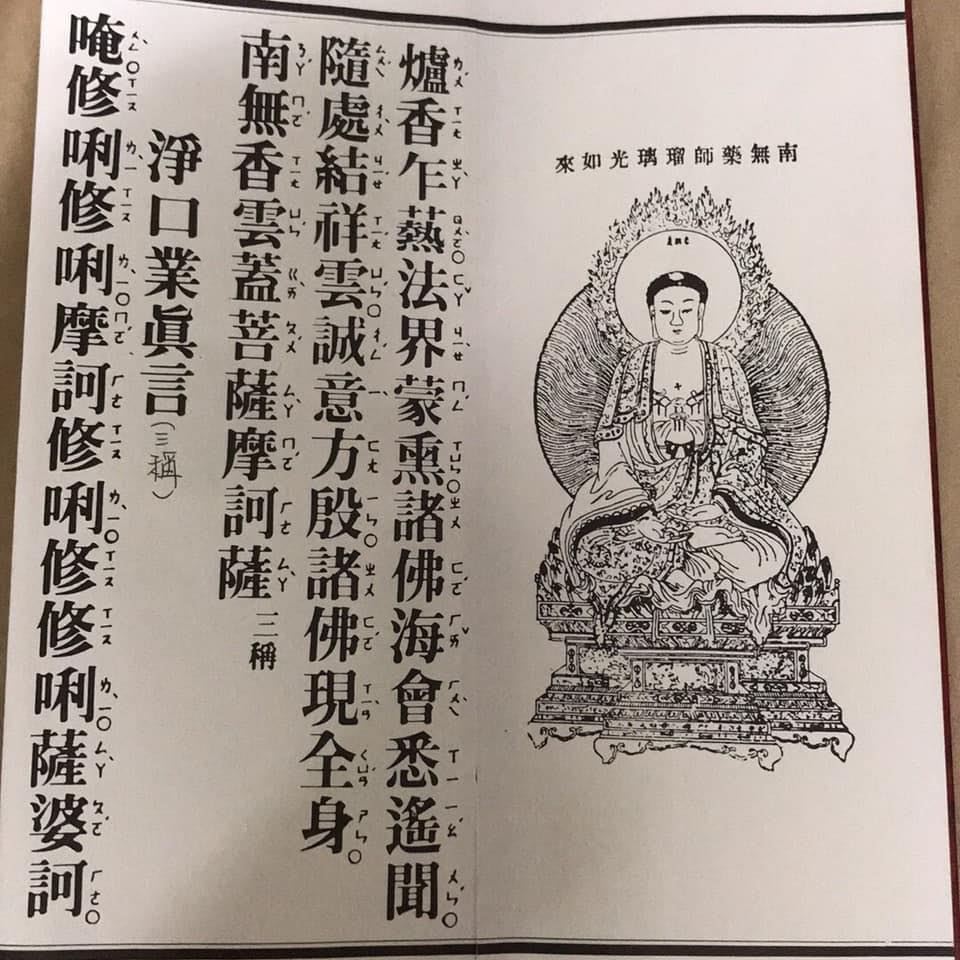 南無藥師瑠璃光如來
爐香乍爇。法界蒙熏。諸佛海會悉遙聞。
隨處結祥雲。誠意方殷。諸佛現全身。
南無香雲蓋菩薩摩訶薩 三稱
淨口業眞言(三稱)
唵。修唎修唎。摩訶修唎。修修唎。薩婆訶。